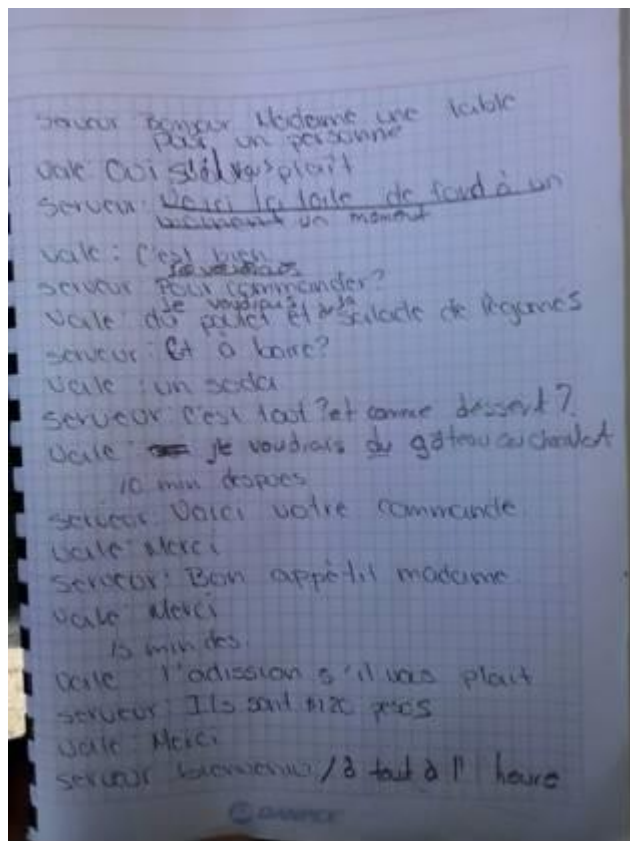 serveur Bonjour Madame une table
pour un personne
vale Oui s'il vous plait
serveur: Voici la toile de fond à un
un moment
vale: C'est bien
Je voudrais
serveur Pour commander?
Je voudrais
vale du poulet et de la salade de légumes
serveur: Et à boire?
vale: un soda
serveur C'est tout? et comme dessert?
vale je voudrais du gâteau au chocolat
10 min despues
serveur: Voici votre commande
vale: Merci
serveur: Bon appétit madame
vale Merci
15 min des.
vale l'adission s'il vous plait
serveur: Ils sont $120 pesos
vale Merci
serveur bienvenu / à tout à l' heure
DANPEX